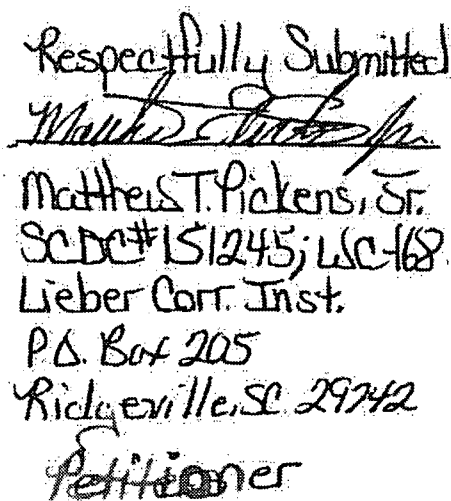 Respectfully Submitted
Matthew T. Pickens, Sr.
SCDC#151245; WC-168
Lieber Corr. Inst.
P.O. Box 205
Ridgeville, SC 29742
Petitioner